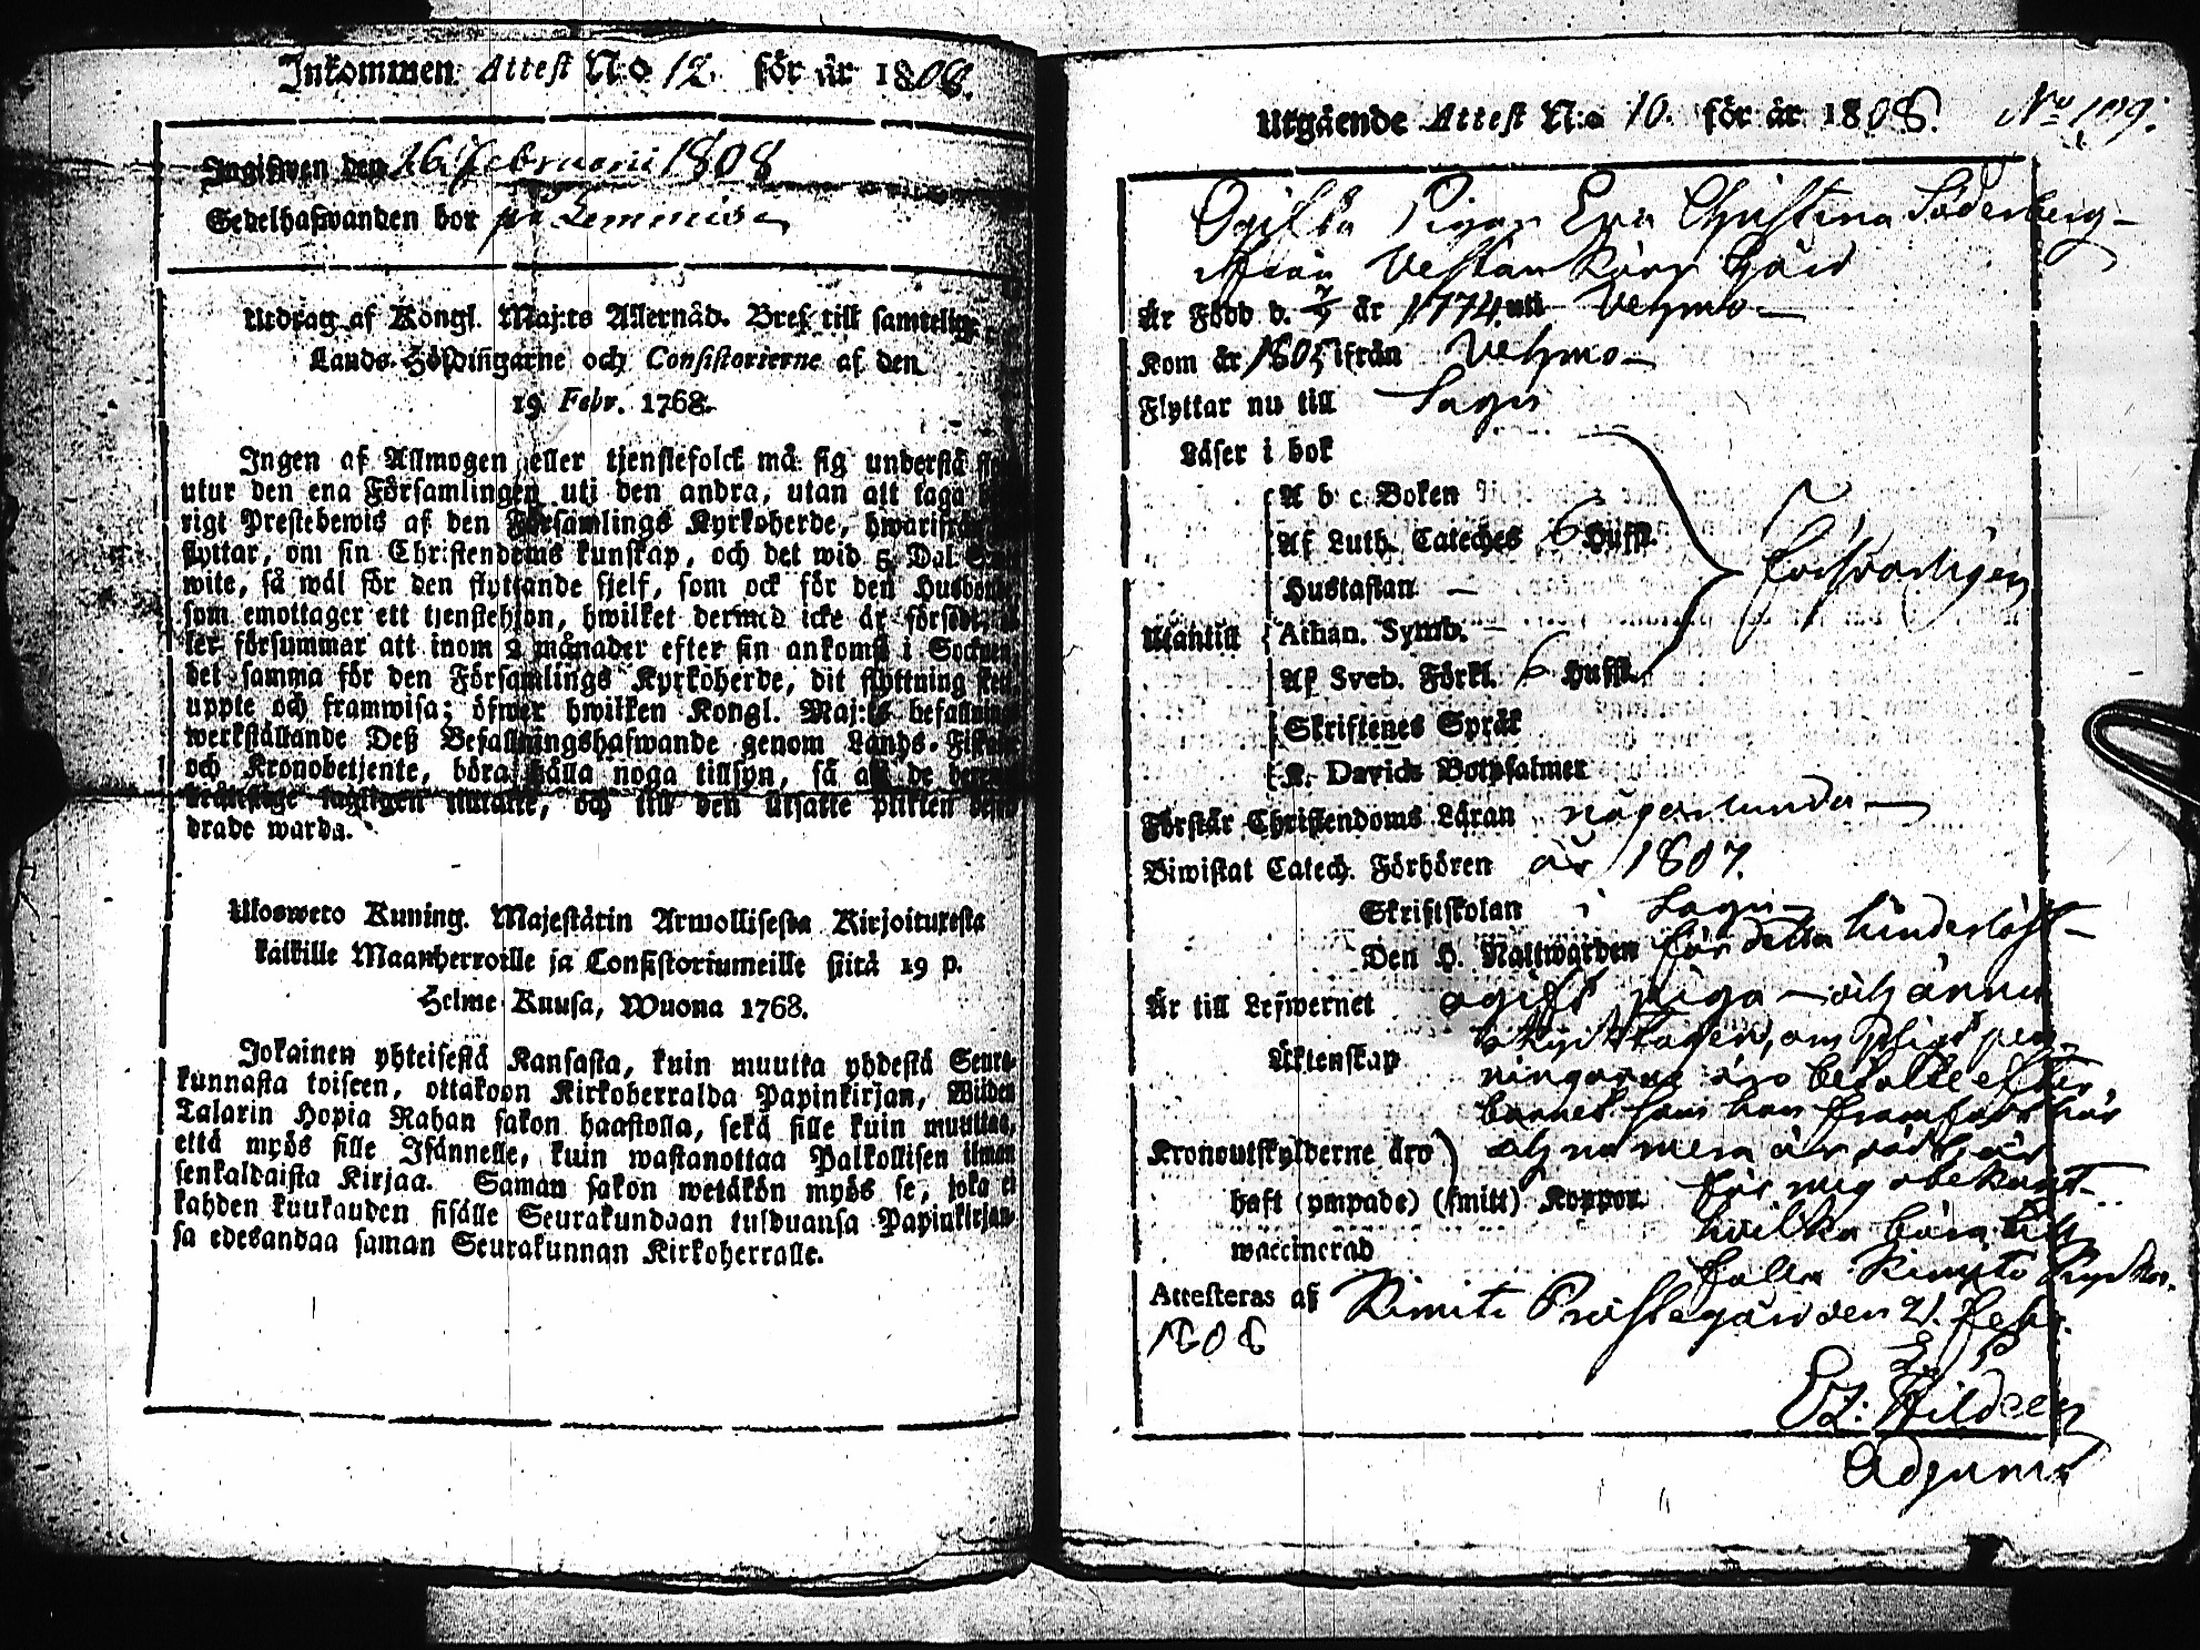 Inkommen Attest N:o 12. för år 1808.
Ingifwen den 26 Februarii 1808
Sedelhafwanden bor på Lemmisa
Utdrag af Kongl. Maj:ts Allernåd. Bref till samtelige
Lands-Höfdingarne och Consistorierne af den
19 Febr. 1768.
Ingen af Allmogen eller tjenstefolck må sig understå
utur den ena Församlingen uti den andra, utan att taga
rigt Prestebewis af den Församlings Kyrkoherde, hwarifrån
flyttar, om sin Christendoms kunskap, och det wid 5 Dal.
wite, så wäl för den flyttande sjelf, som ock för den Husbonde
som emottager ett tjenstehjon, hwilket dermed icke är försedt,
ler försummar att inom 2 månader efter sin ankomst i Socknen,
det samma för den Församlings Kyrkoherde, dit flyttning sker,
uppte och framwisa; öfwer hwilken Kongl. Maj:ts befallning
werkställande Deß Befallningshafwande genom Lands-Fiskaler
och Kronobetjente, böra hålla noga tillsyn, så att de
och till den utsatte plikten
drade warda.
Ulosweto Kuning. Majestätin Armollisesta Kirjoituxesta
kaikille Maanherroille ja Consistoriumeille siitä 19 p.
Helme-Kuusa, Wuona 1768.
Jokainen yhteisestä Kansasta, kuin muutta yhdestä Seura-
kunnasta toiseen, ottakoon Kirkoherralda Papinkirjan, Wiiden
Talarin Hopia Rahan sakon haastolla, sekä sille kuin muuttaa,
että myös sille Isännelle, kuin wastanottaa Palkollisen ilman
senkaltaista Kirjaa. Saman sakon wetäkön myös se, joka ei
kahden kuukauden sisälle Seurakundaan tulduansa Papinkirjan-
sa edesandaa saman Seurakunnan Kirkoherralle.
Utgående Attest N:o 10. för år 1808. No 109.
Ogifta Pigan Eva Christina Söderberg
ifrån Vestankärr Gård
Är Född d. 7/7 år 1774 uti Vehmo
Kom år 1805 ifrån Vehmo
Flyttar nu till Sagu
Läser i bok
A b c Boken
Af Luth. Cateches 6 Hufst.
Hustaflan —
Försvarligen
Utantill Athan. Symb. —
Af Sveb. Förkl. 6 Hufst.
Skriftenes Språk
K. Davids Botpsalmer
Förstår Christendoms Läran någorlunda
Biwistat Catech. Förhören år 1807.
Skriftskolan i Sagu
Den H. Nattwarden för detta hinderlöst
Är till Lefwernet ogift piga och ännu
Äktenskap okyrktagen, om pligt pen-
ningarne äro betalte efter
barnet som hon framfödt här
Kronoutskylderne äro och nu mera är dödt, är
haft (ympade) (smitt) Koppor. för mig obekant
hvilka böra till
waccinerad
falla Kimito Kyrka.
Attesteras af Kimito Prästegård den 21. Febr.
1808
Ez: Hildeen
Adjunct